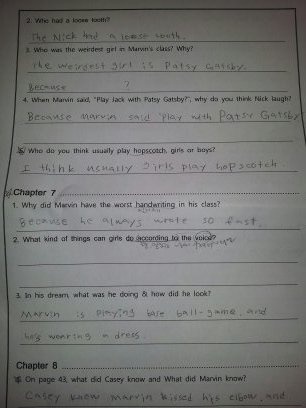 2. Who had a loose tooth?
The Nick had a loose tooth.
3. Who was the weirdest girl in Marvin's class? Why?
The weirdest girl is Patsy Gatsby.
Because ?
4. When Marvin said, "Play Jack with Patsy Gatsby?", why do you think Nick laugh?
Because marvin said 'play with Patsy Gatsby
5. Who do you think usually play hopscotch, girls or boys?
I think usually girls play hopscotch
Chapter 7
1. Why did Marvin have the worst handwriting in his class?
Because he always wrote so fast.
2. What kind of things can girls do according to the voice?
3. In his dream, what was he doing & how did he look?
Marvin is playing base ball-game, and
he's wearing a dress.
Chapter 8
On page 43, what did Casey know and What did Marvin know?
Casey knew marvin kissed his elbow, and